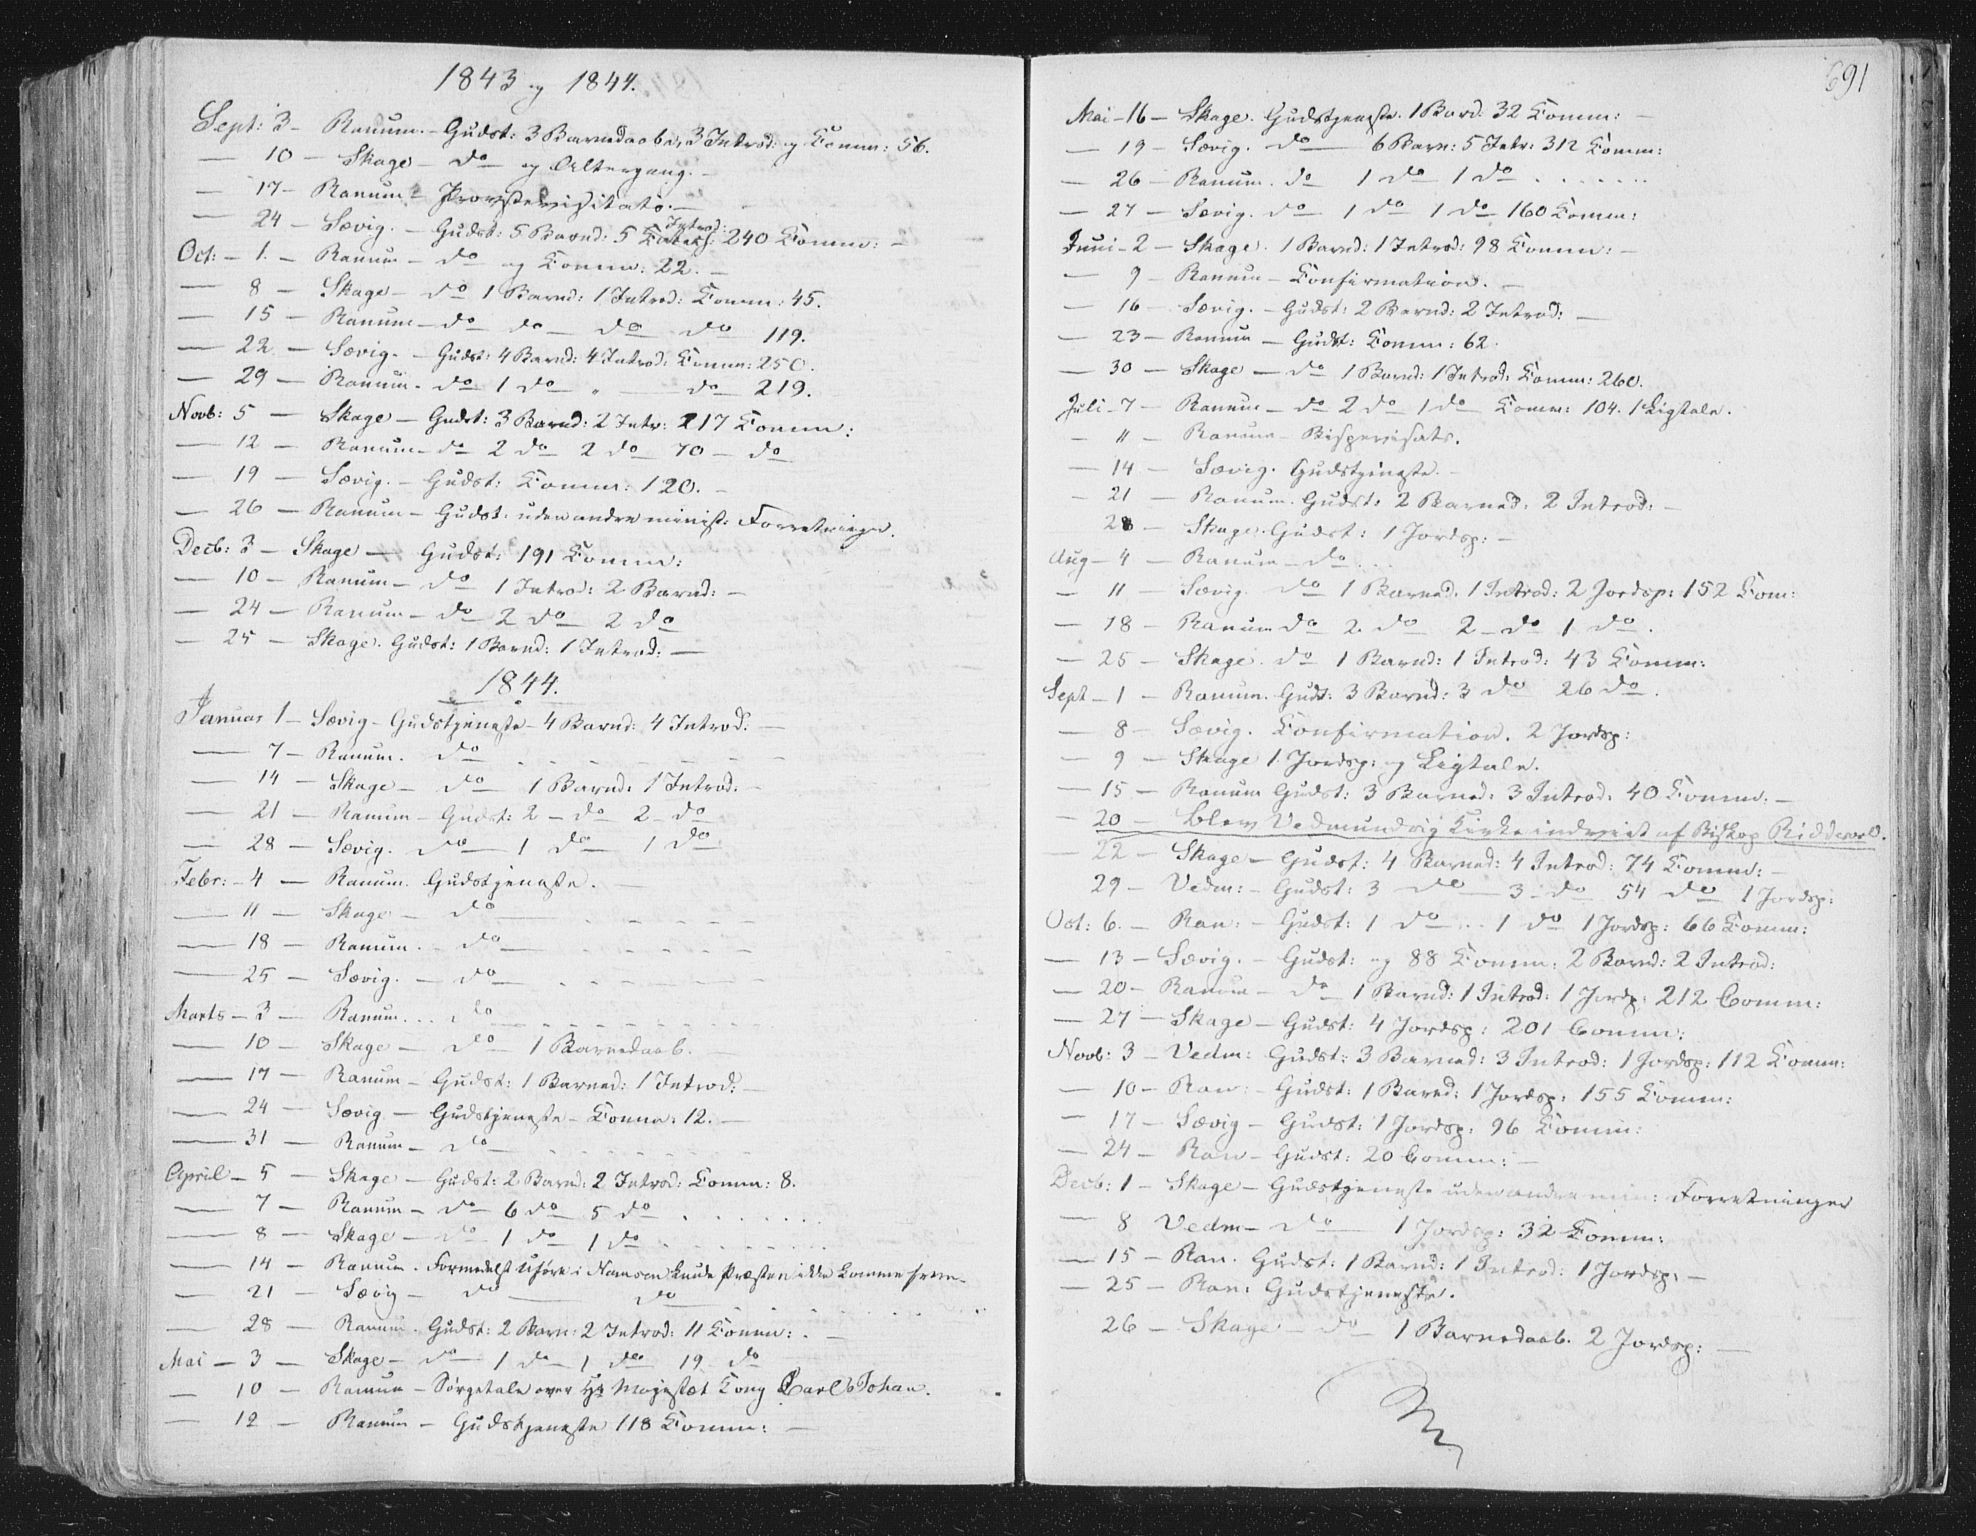 1843 og 1844.
Sept: 3 – Ranum. – Gudst: 3 Barnedaab, 3 Introd: og Komm: 56.
— 10 – Skage – do og Altergang. –
— 17 – Ranum – Provstevisitats. –
— 24 – Sævig. – Gudst: 5 Barnd: 5 Introd: 240 Komm: –
Oct: – 1. – Ranum – do og Komm: 22. –
— 8 – Skage – do 1 Barnd: 1 Introd: Komm: 45.
— 15 – Ranum – do do – do do 119.
— 22 – Sævig. – Gudst: 4 Barnd: 4 Introd: Komm: 250.
— 29 – Ranum. do 1 do „ — do 219.
Novb: 5 – Skage – Gudst: 3 Barnd: 2 Intr: 217 Komm:
— 12 – Ranum – do 2 do 2 do 70 – do
— 19 – Sævig. – Gudst: Komm: 120. –
— 26 – Ranum – Gudst: uden andre minist: Forretninger.
Decb: 3 – Skage — Gudst: 191 Komm:
— 10 – Ranum – do 1 Introd: 2 Barnd: –
— 24 – Ranum – do 2 do 2 do
— 25 – Skage. Gudst: 1 Barnd: 1 Introd: —
1844.
Januar 1 – Sævig – Gudstjeneste – 4 Barnd: 4 Introd: –
— 7 – Ranum. do . . . . .
— 14 – Skage – do 1 Barnd: 1 Introd. –
— 21 – Ranum – Gudst: 2 – do 2 – do
— 28 – Sævig. do – 1 do 1 do
Febr: – 4 – Ranum. Gudstjeneste. —
— 11 – Skage – do . . . . .
— 18 – Ranum. – do . . . . .
— 25 – Sævig. – do . . . . .
Marts – 3 – Ranum. . . do . . . . .
— 10 – Skage – do – 1 Barnedaab. –
— 17 – Ranum – Gudst: 1 Barned: 1 Introd: –
— 24 – Sævig – Gudstjeneste – Komm: 12. –
— 31 – Ranum – do . . . . .
April – 5 – Skage – Gudst: 2 Barnd: 2 Introd: Komm: 8.
— 7 – Ranum – do 6 do 5 do . . . . .
— 8 – Skage – do 1 do 1 do . . . . .
— 14 – Ranum. Formedelst Uføre i Namsen kunde Præsten ikke komme frem –
— 21 – Sævig – do — do . . . . .
— 28 – Ranum. Gudst: 2 Barn: 2 Introd: 11 Komm: . –
Mai – 3 – Skage – do 1 do 1 do 19 do
— 10 – Ranum – Sørgetale over Hs Majestæt Kong Carl Johan.
— 12 – Ranum – Gudstjeneste 118 Komm: —
691
Mai – 16 – Skage. Gudstjeneste. 1 Barnd: 32 Komm: –
— 19 – Sævig. do — 6 Barn: 5 Intr: 312 Komm:
— 26 – Ranum. do 1 do 1 do . . . . .
— 27 – Sævig. do 1 do 1 do 160 Komm:
Juni – 2 – Skage. 1 Barnd: 1 Introd: 98 Komm: –
— 9 – Ranum – Confirmation. –
— 16 – Sævig. – Gudst: 2 Barnd: 2 Introd: —
— 23 – Ranum – Gudst: Komm: 62.
— 30 – Skage – do 1 Barnd: 1 Introd: Komm: 260.
Juli – 7 – Ranum – do 2 do 1 do Komm: 104. 1 Ligtale.
– 11 – Ranum – Bispevisats.
– 14 – Sævig. Gudstjeneste. –
– 21 – Ranum. Gudst: 2 Barned: 2 Introd: –
28 – Skage. Gudst: 1 Jordsp: –
Aug – 4 – Ranum – do . . .
– 11 – Sævig. do 1 Barned. 1 Introd: 2 Jordsp: 152 Kom:
– 18 – Ranum do 2 do 2 – do 1 do .
— 25 – Skage. do 1 Barnd: 1 Introd: 43 Komm:
Sept – 1 – Ranum. Gudst: 3 Barnd: 3 do 26 do .
— 8 – Sævig. Confirmation. 2 Jordsp:
— 9 – Skage 1 Jordsp: og Ligtale.
— 15 – Ranum Gudst: 3 Barned: 3 Introd: 40 Komm: –
— 20 – Blev Vedmundvig Kirke indviet af Biskop Riddervold.
— 22 – Skage – Gudst: 4 Barned: 4 Introd: 74 Komm: –
29 – Vedm: – Gudst: 3 do – 3 – do 54 do 1 Jordsp:
Oct: 6. – Ran: – Gudst: 1 do . . 1 do 1 Jordsp: 66 Komm:
— 13 – Sævig. – Gudst: og 88 Komm: 2 Barnd: 2 Introd:
— 20 – Ranum – do 1 Barnd: 1 Introd: 1 Jordsp: 212 Comm:
— 27 – Skage – Gudst: 4 Jordsp: 201 Comm:
Novb: 3 – Vedm: Gudst: 3 Barned: 3 Introd: 1 Jordsp: 112 Komm:
— 10 – Ran: – Gudst: 1 Barnd: 1 Jordsp: 155 Komm:
— 17 – Sævig – Gudst: 1 Jordsp: 96 Komm:
— 24 – Ran – Gudst: 20 Comm: –
Decb: 1 – Skage – Gudstjeneste uden andre min: Forretninger
— 8 Vedm – do — 1 Jordsp: 32 Komm:
— 15 – Ran. Gudst: 1 Barnd: 1 Introd: 1 Jordsp: –
— 25 – Ran: Gudstjeneste.
26 – Skage – do – 1 Barnedaab. 2 Jordsp: —